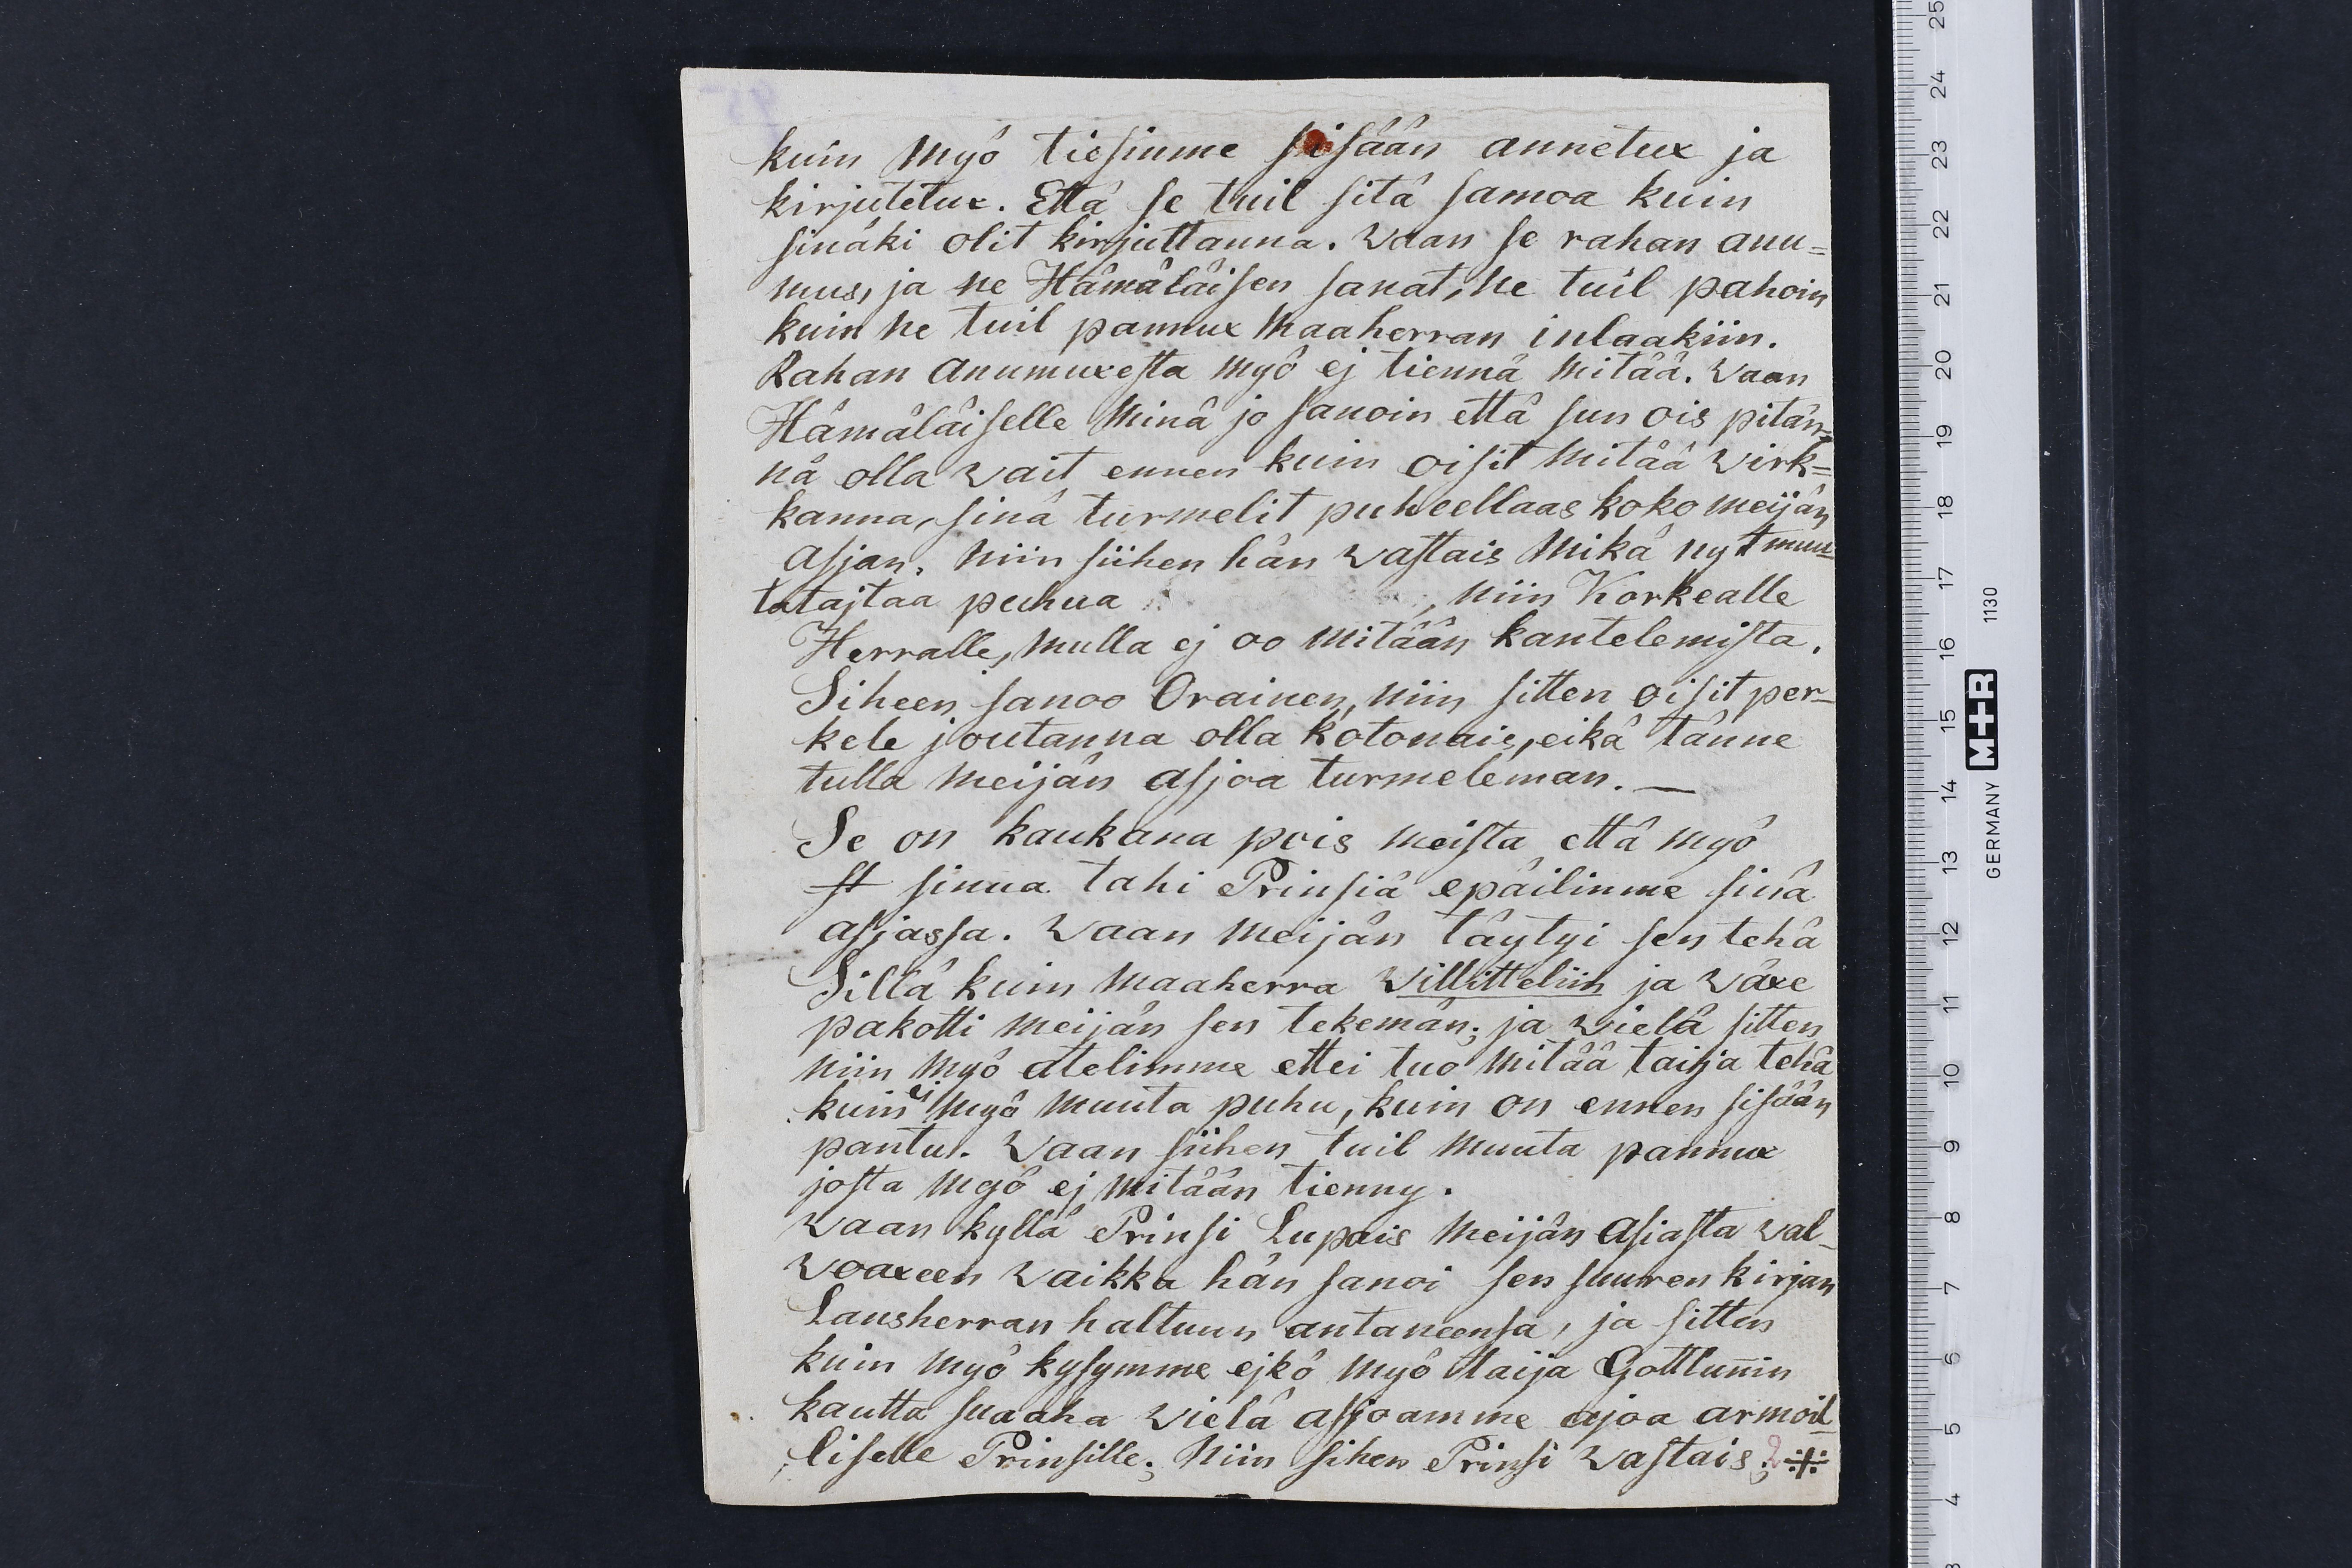 kuin myö tiesimme sisään annetux ja
kirjutetux. Että se tuil sitä samoa kuin
sinäki olit kirjuttanna. Waan se rahan anu=
mus, ja ne Hämäläisen sanat, ne tuil pahoin
kuin ne tuil pannux Maaherran inlaakiin.
Rahan anumuxesta myö ej tiennä mitää. Waan
Hämäläiselle Minä jo sanoin että sun ois pitän=
nä olla wait ennen kuin oisit mitää wirk=
kanna, sinä turmelit puheellaas koko meijän
asjan. Niin siihen hän wastais Mikä nyt muu=
ta tajtaa puhua , niin Korkealle
Herralle, mulla ej oo mitään kantelemista.
Siheen sanoo Orainen, niin sitten oisit per=
kele joutanna olla kotonais, eikä tänne
tulla meijän asjoa turmeleman. —
Se on kaukana pois meista että myö
st sinua tahi Prinsiä epäilimme sinä
asjassa. Waan meijän täytyi sen tehä
Sillä kuin Maaherra Willitteliin ja wäxe
pakotti meijän sen tekemän; ja wielä sitten
niin myö atelimme ettei tuo mitää taija tehä
kuin ei myö muuta puhu, kuin on ennen sisään
pantu. Waan siihen tuil muuta pannux
josta myö ej mitään tienny.
Waan kyllä Prinsi Lupais meijän Asiasta wal=
woaxeen waikka hän sanoi sen suuren kirjan
Lansherran haltuun antaneensa, ja sitten
kuin myö kysymme ejkö myö taija Gottlunin
kautta suaaha wielä asjoamme ajoa armoil=
liselle Prinsille; Niin sihen Prinsi wastais;
GERMANY M+R 1130
25
24
23
22
21
20
19
18
17
16
15
14
13
12
11
10
9
8
7
6
5
4